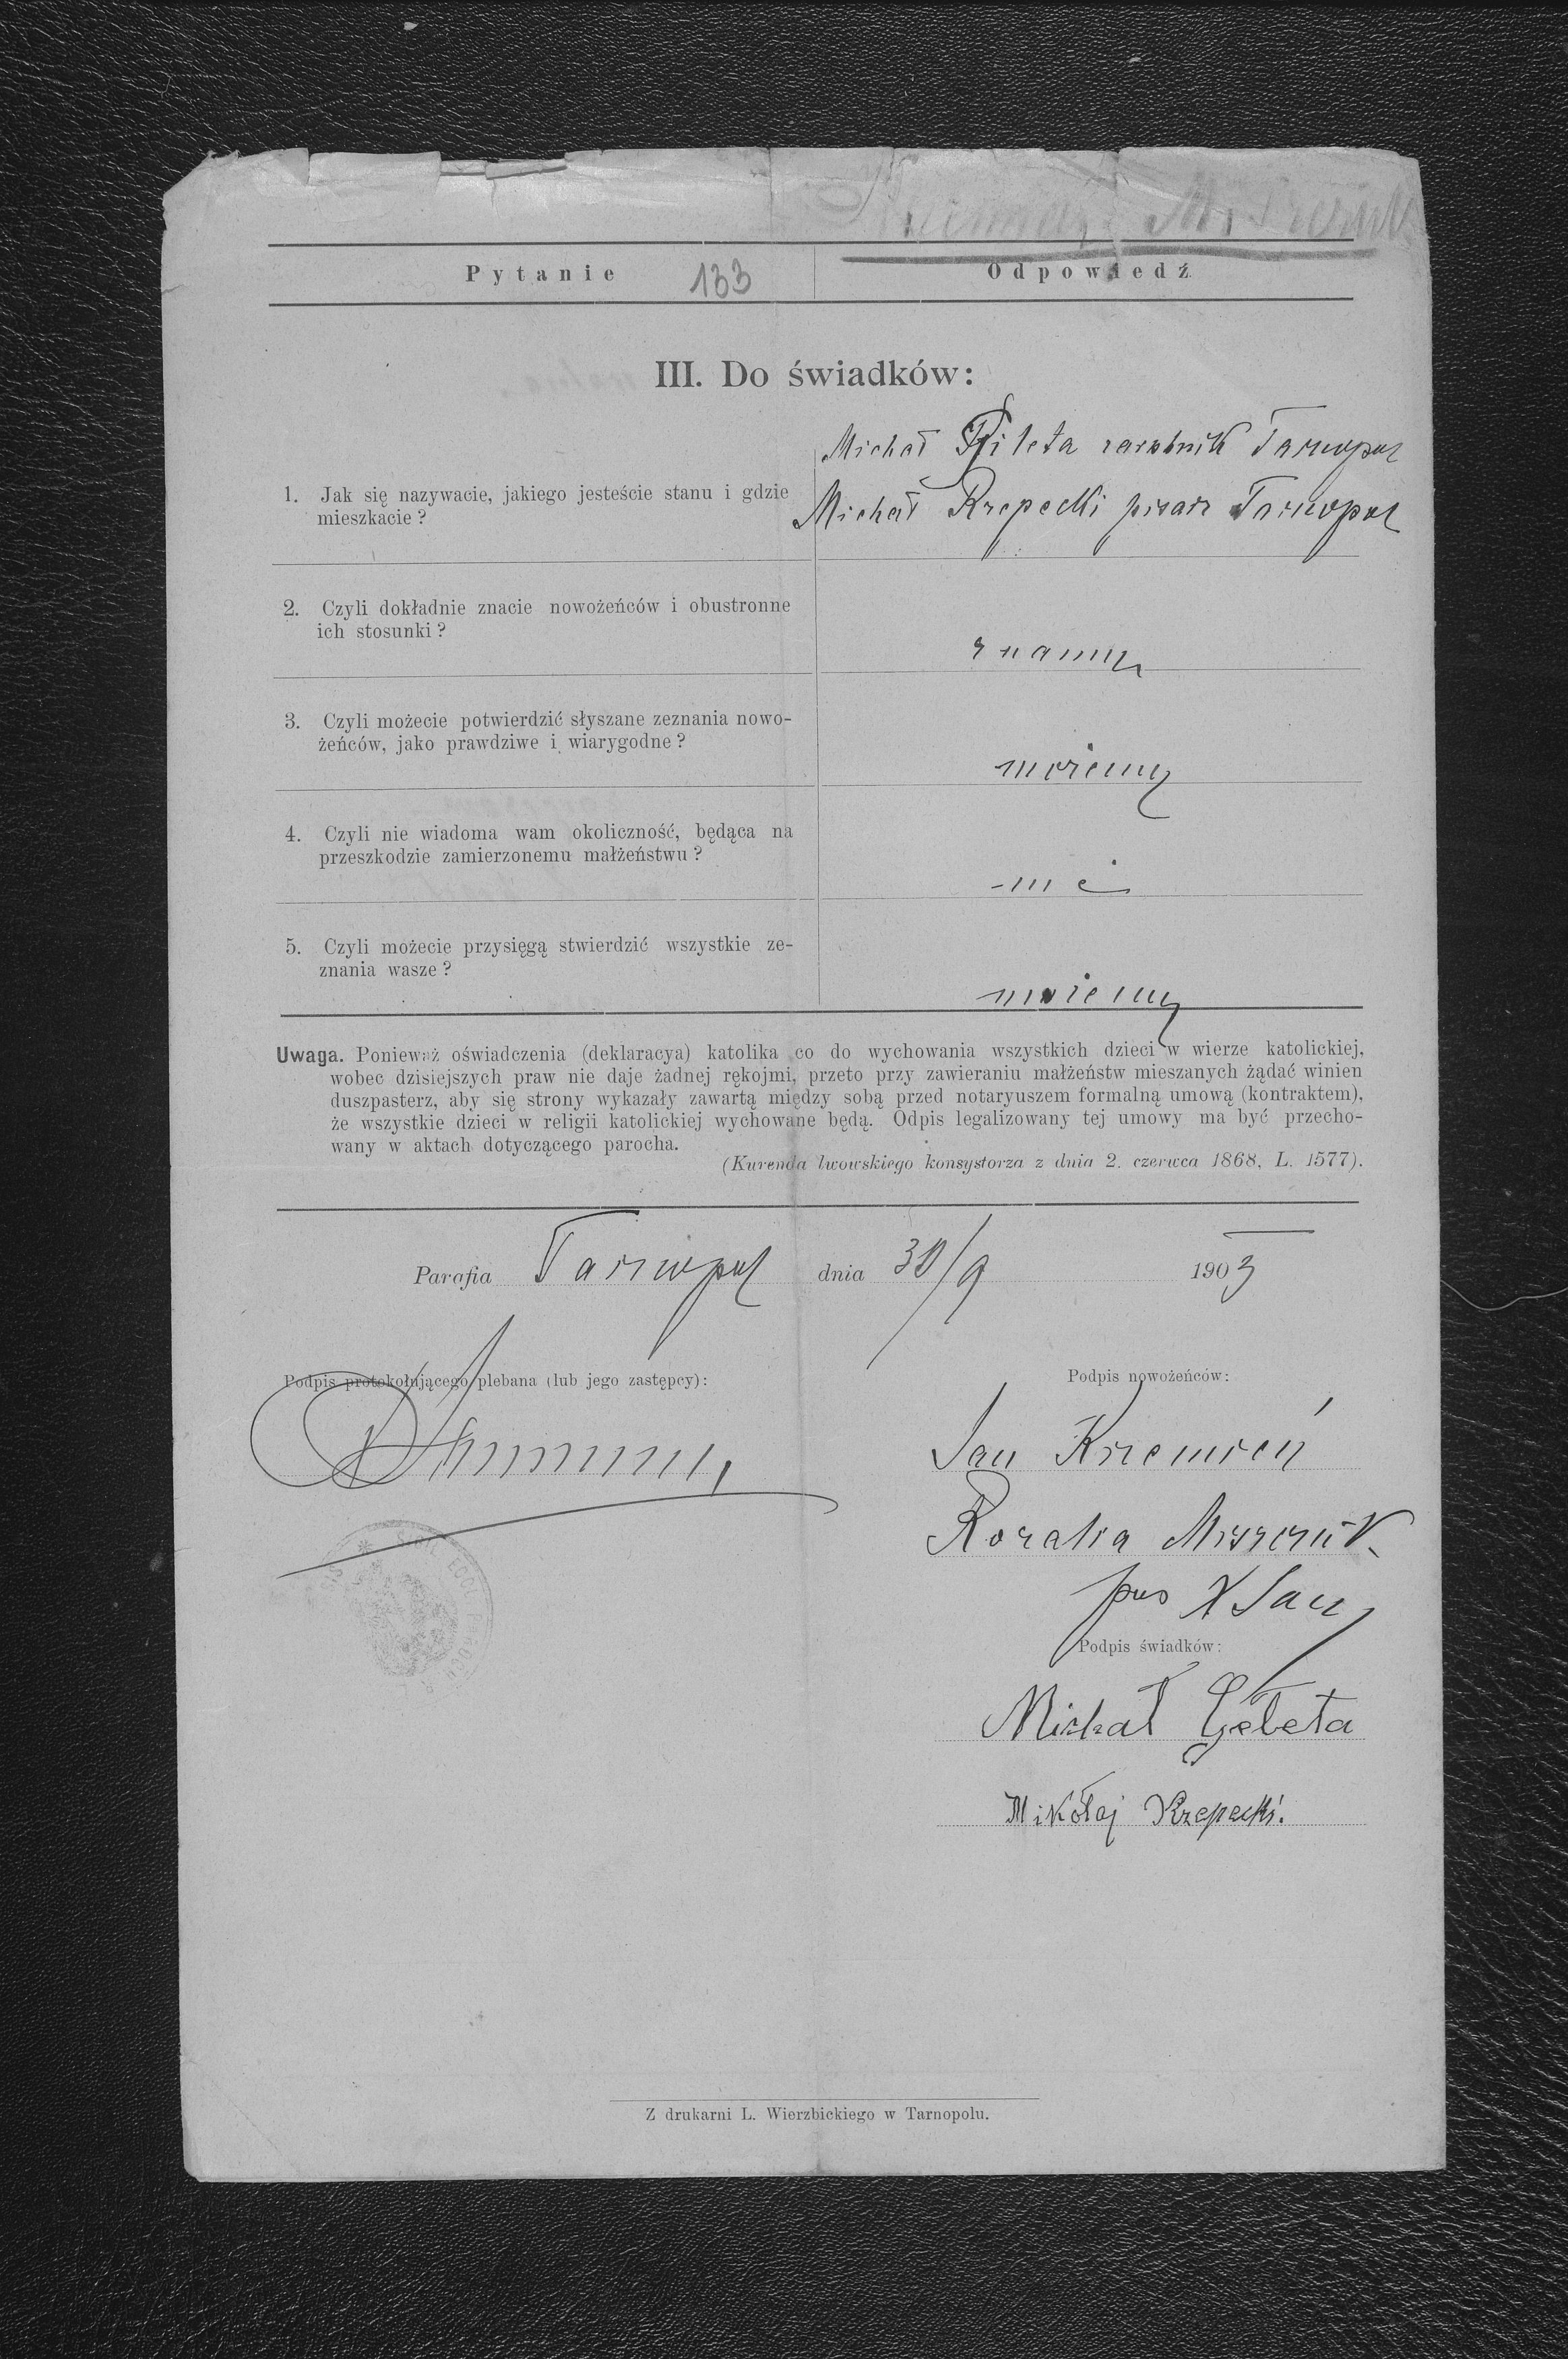 Pytanie 133 Odpowiedź
III. Do świadków:
Michał zarobnik Tarnopol
1. Jak się nazywacie, jakiego jesteście stanu i gdzie
mieszkacie ?
Michał Rzepecki pisarz Tarnopol
2. Czyli dokładnie znacie nowożeńców i obustronne
ich stosunki ?
znamy
3. Czyli możecie potwierdzić słyszane zeznania nowo-
żeńców, jako prawdziwe i wiarygodne ?
możemy
4. Czyli nie wiadoma wam okoliczność, będąca na
przeszkodzie zamierzonemu małżeństwu ?
nie
5. Czyli możecie przysięgą stwierdzić wszystkie ze-
znania wasze ?
możemy
Uwaga. Ponieważ oświadczenia (deklaracya) katolika co do wychowania wszystkich dzieci w wierze katolickiej,
wobec dzisiejszych praw nie daje żadnej rękojmi, przeto przy zawieraniu małżeństw mieszanych żądać winien
duszpasterz, aby się strony wykazały zawartą między sobą przed notaryuszem formalną umową (kontraktem),
że wszystkie dzieci w religii katolickiej wychowane będą. Odpis legalizowany tej umowy ma być przecho-
wany w aktach dotyczącego parocha.
(Kurenda lwowskiego konsystorza z dnia 2. czerwca 1868, L. 1577).
Parafia Tarnopol dnia 30/9 1903
Podpis protokołującego plebana (lub jego zastępcy):
Podpis nowożeńców:
Jan Krzemień
Rozalia Miszczuk
Podpis świadków:
Michał Gełeta
Mikołaj Rzepecki.
Z drukarni L. Wierzbickiego w Tarnopolu.